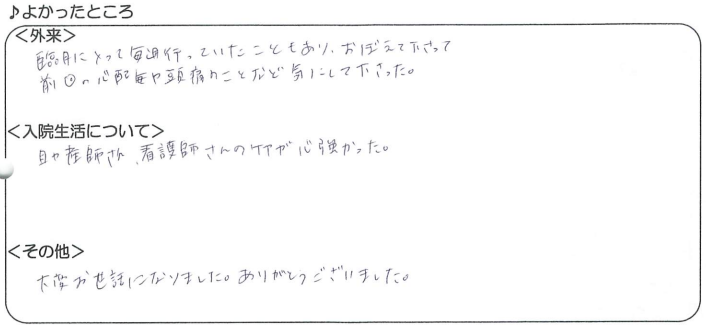 ♪よかったところ
＜外来＞
臨月に入って毎週行っていたこともあり、おぼえて下さって
前回の心配事や頭痛のことなど気にして下さった。
＜入院生活について＞
助産師さん、看護師さんのケアが心強かった。
＜その他＞
大変お世話になりました。ありがとうございました。